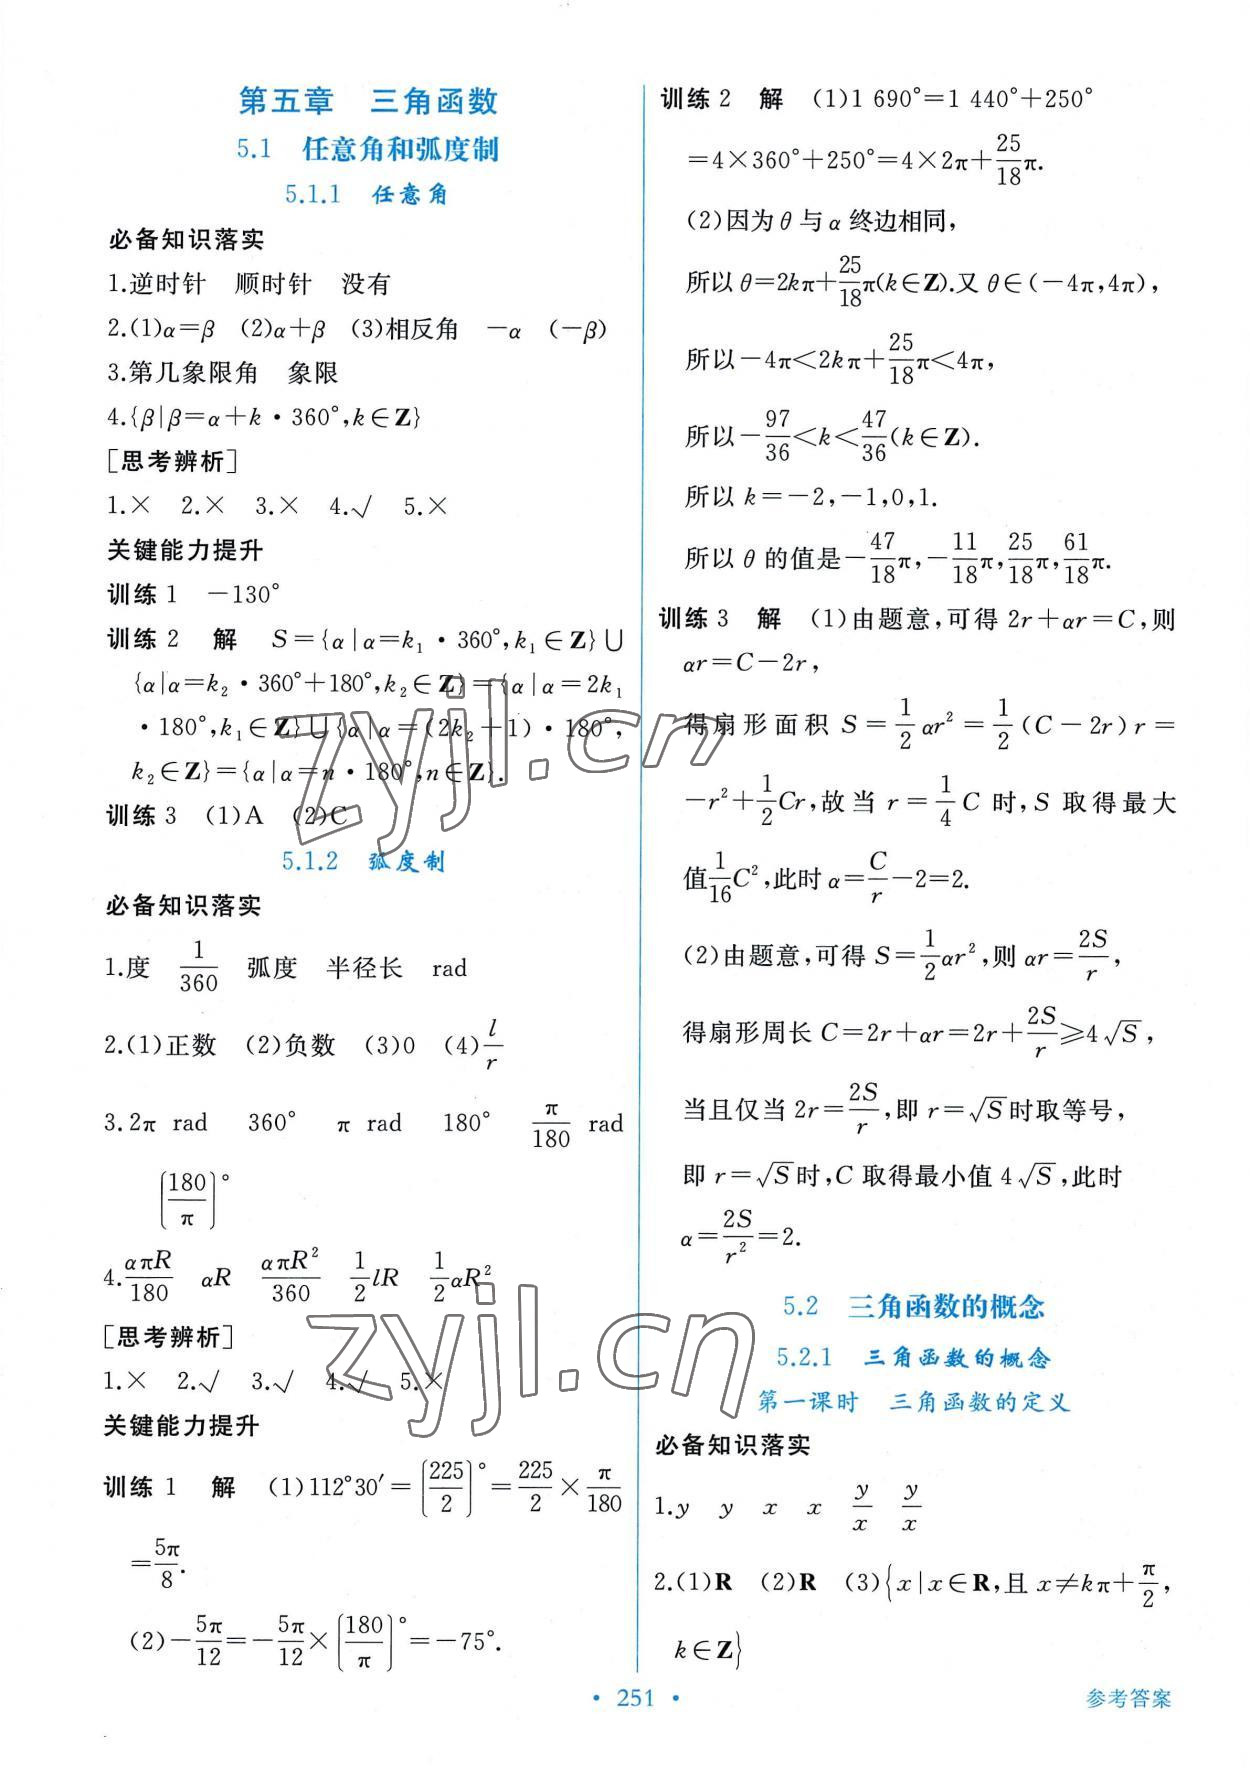 第五章　三角函数
5.1　任意角和弧度制
5.1.1　任意角
必备知识落实
1.逆时针　顺时针　没有
2.(1)α=β　(2)α+β　(3)相反角　-α　(-β)
3.第几象限角　象限
4.{β|β=α+k·360°,k∈Z}
[思考辨析]
1.×　2.×　3.×　4.√　5.×
关键能力提升
训练1　-130°
训练2　解　S={α|α=k₁·360°,k₁∈Z}∪
{α|α=k₂·360°+180°,k₂∈Z}={α|α=2k₁
·180°,k₁∈Z}∪{α|α=(2k₂+1)·180°,
k₂∈Z}={α|α=n·180°,n∈Z}.
训练3　(1)A　(2)C
5.1.2　弧度制
必备知识落实
1.度　1/360　弧度　半径长　rad
2.(1)正数　(2)负数　(3)0　(4)l/r
3.2π rad　360°　π rad　180°　π/180 rad
(180/π)°
4.απR/180　αR　απR²/360　1/2 lR　1/2 αR²
[思考辨析]
1.×　2.√　3.√　4.√　5.×
关键能力提升
训练1　解　(1)112°30′=(225/2)°=225/2×π/180
=5π/8.
(2)-5π/12=-5π/12×(180/π)°=-75°.
训练2　解　(1)1 690°=1 440°+250°
=4×360°+250°=4×2π+25/18π.
(2)因为θ与α终边相同,
所以θ=2kπ+25/18π(k∈Z).又θ∈(-4π,4π),
所以-4π<2kπ+25/18π<4π,
所以-97/36<k<47/36(k∈Z).
所以k=-2,-1,0,1.
所以θ的值是-47/18π,-11/18π,25/18π,61/18π.
训练3　解　(1)由题意,可得2r+αr=C,则
αr=C-2r,
得扇形面积S=1/2αr²=1/2(C-2r)r=
-r²+1/2Cr,故当r=1/4C时,S取得最大
值1/16C²,此时α=C/r-2=2.
(2)由题意,可得S=1/2αr²,则αr=2S/r,
得扇形周长C=2r+αr=2r+2S/r≥4√S,
当且仅当2r=2S/r,即r=√S时取等号,
即r=√S时,C取得最小值4√S,此时
α=2S/r²=2.
5.2　三角函数的概念
5.2.1　三角函数的概念
第一课时　三角函数的定义
必备知识落实
1.y　y　x　x　y/x　y/x
2.(1)R　(2)R　(3){x|x∈R,且x≠kπ+π/2,
k∈Z}
·251·
参考答案
zyjl.cn
zyjl.cn